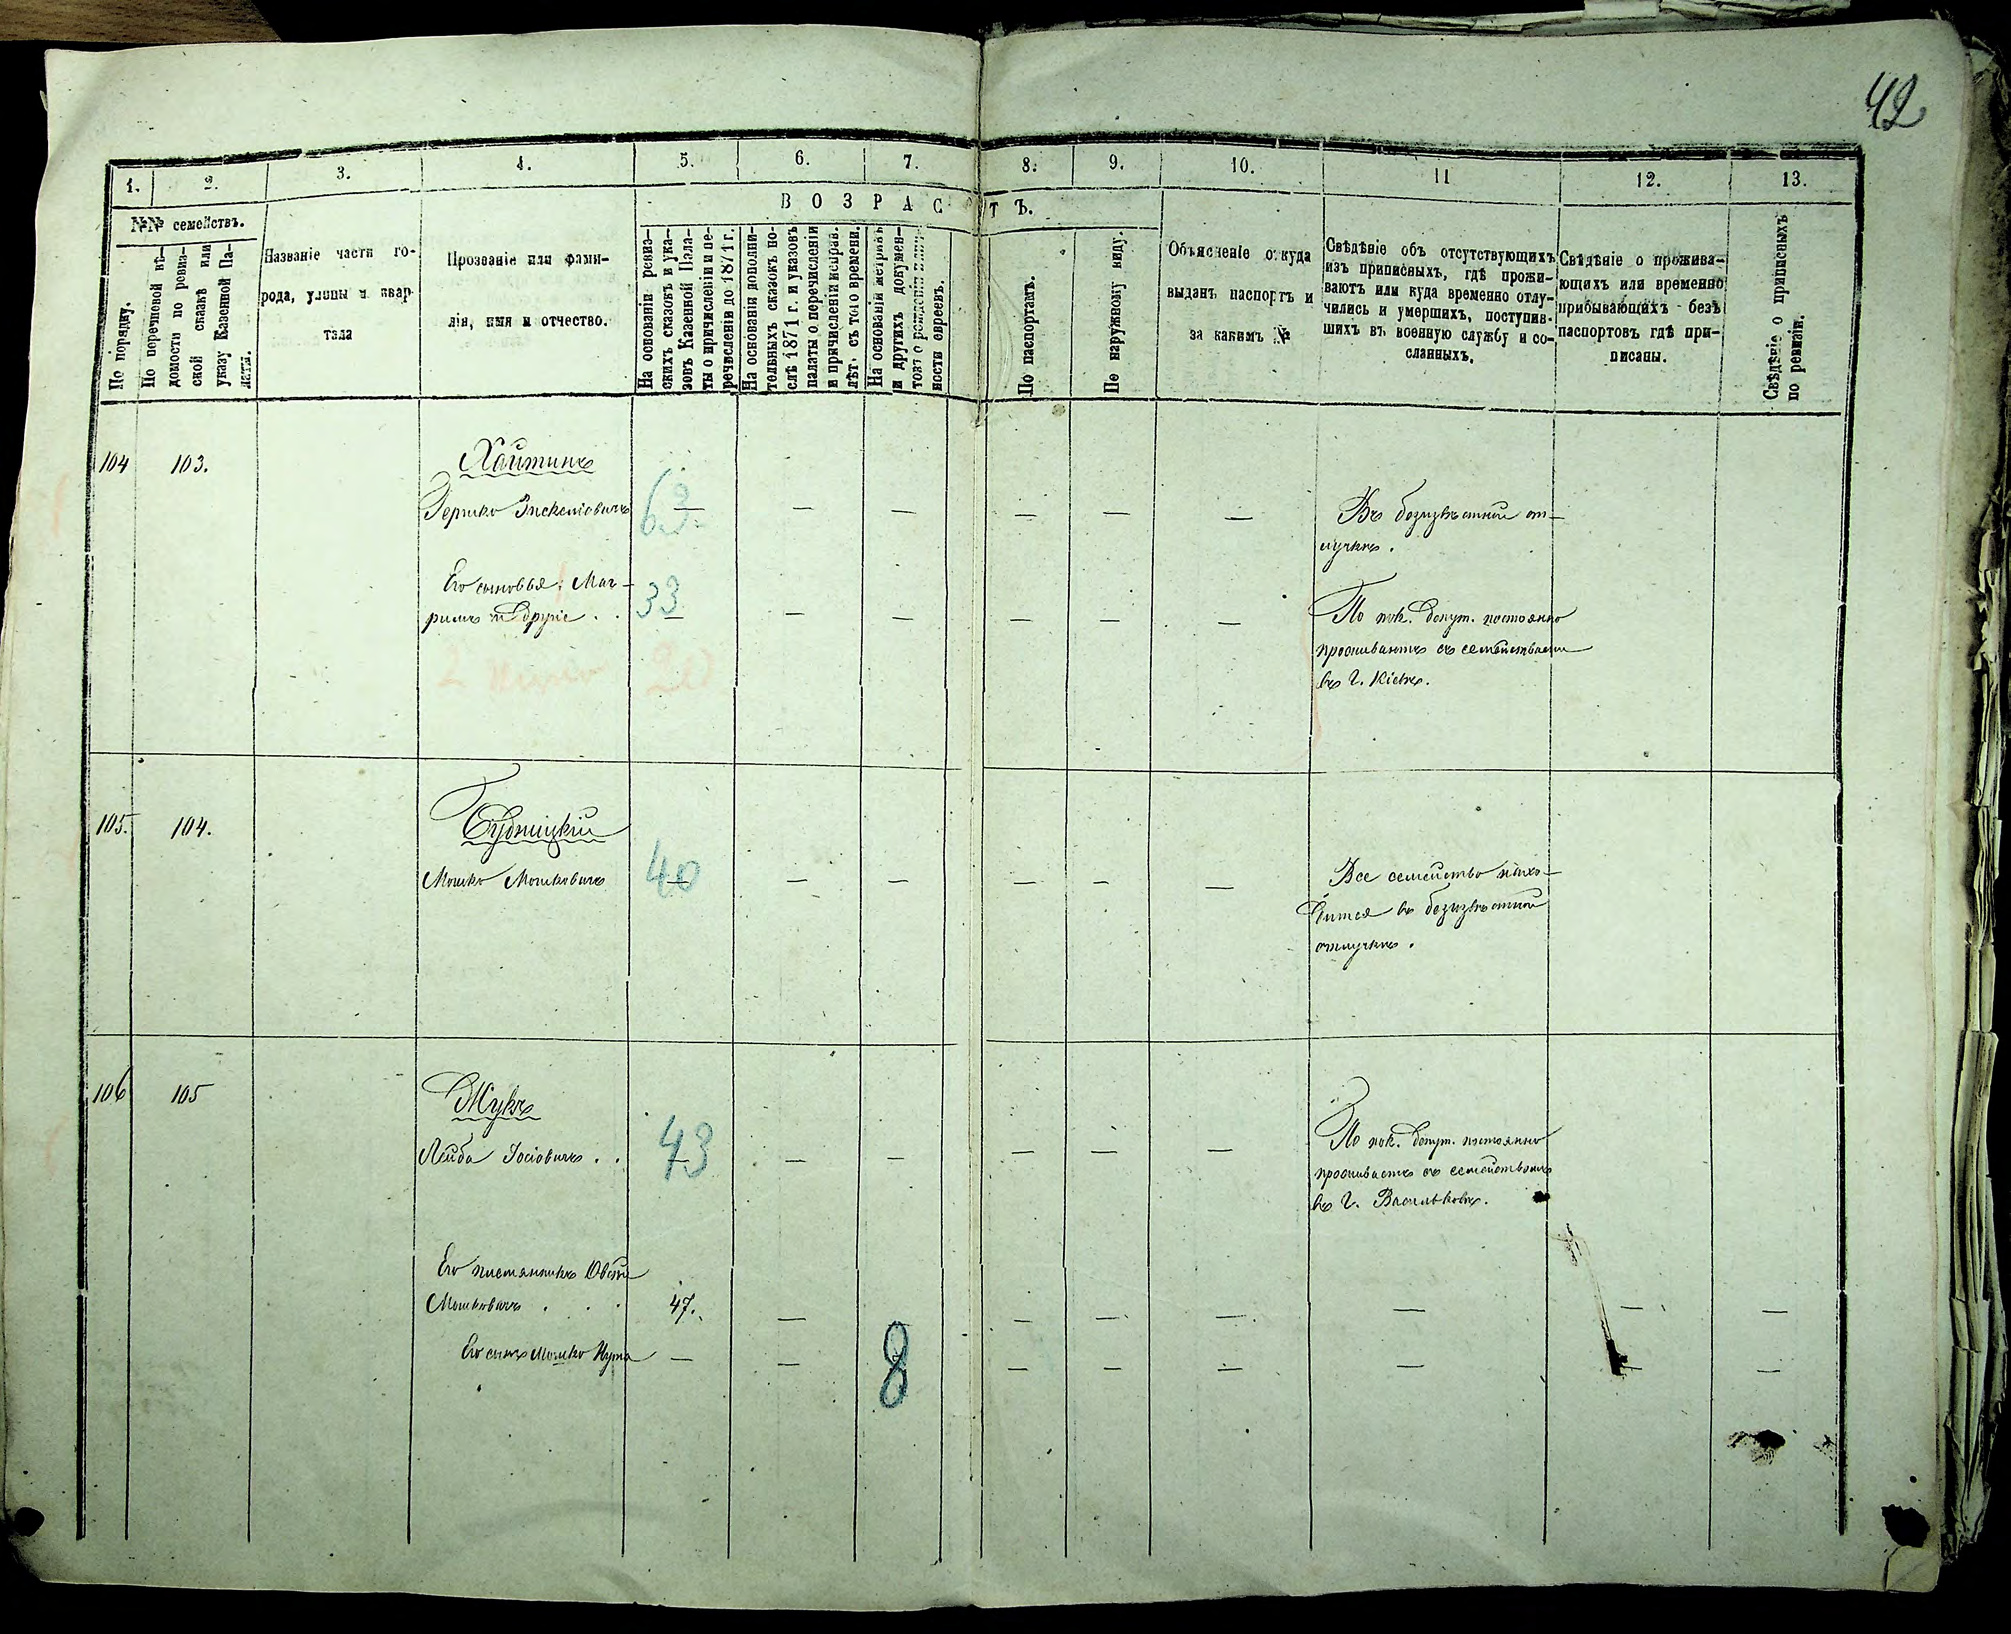 42
1. 2. 3. 4. 5. 6. 7. 8. 9. 10. 11 12. 13.
№№ семействъ.
По порядку.
По перечневой вѣ-
домости по ревиз-
ской сказкѣ или
указу Казенной Па-
латы.
Названіе части го-
рода, улицы и квар
тала
Прозваніе или фами-
лія, имя и отчество.
ВОЗРАСТЪ.
На основаніи ревиз-
скихъ сказокъ и ука-
зовъ Казенной Пала-
ты о причисленіи и пе-
речисленіи до 1871 г.
На основаніи дополни-
тельныхъ сказокъ по-
слѣ 1871 г. и указовъ
палаты о перечисленіи
и причисленіи исправ.
лѣт. съ того времени.
На основаніи метрикъ
и другихъ докумен-
товъ о рожденіи
ности евреевъ.
По паспортамъ.
По наружному виду.
Объясненіе откуда
выданъ паспортъ и
за какимъ №
Свѣдѣніе объ отсутствующихъ
изъ приписныхъ, гдѣ прожи-
ваютъ или куда временно отлу-
чились и умершихъ, поступив-
шихъ въ военную службу и со-
сланныхъ.
Свѣдѣніе о прожива-
ющихъ или временно
прибывающихъ безъ
паспортовъ гдѣ при-
писаны.
Свѣдѣніе о приписныхъ
по ревизіи.
104 103. Хайтинъ
Гершко — — — — — Въ безизвѣстной от-
лучкѣ.
Его сыновья: Мат-
33 — — — — — По пок. депут. постоянно
проживаютъ съ семействами
въ г. Кіевѣ.
105. 104. Будницкій
Мошко Мошковичъ 40 — — — — — Все семейство нахо-
дится въ безизвѣстной
отлучкѣ.
106 105 Жукъ
Лейба Іосіовичъ . . 43 — — — — — По пок. депут. постоянно
проживаетъ съ семействомъ
въ г. Васильковѣ.
Его племянникъ
Мошковичъ . . . 47. — — — — — — — —
Его сынъ Мошко Нута — — 8 — — — — — —